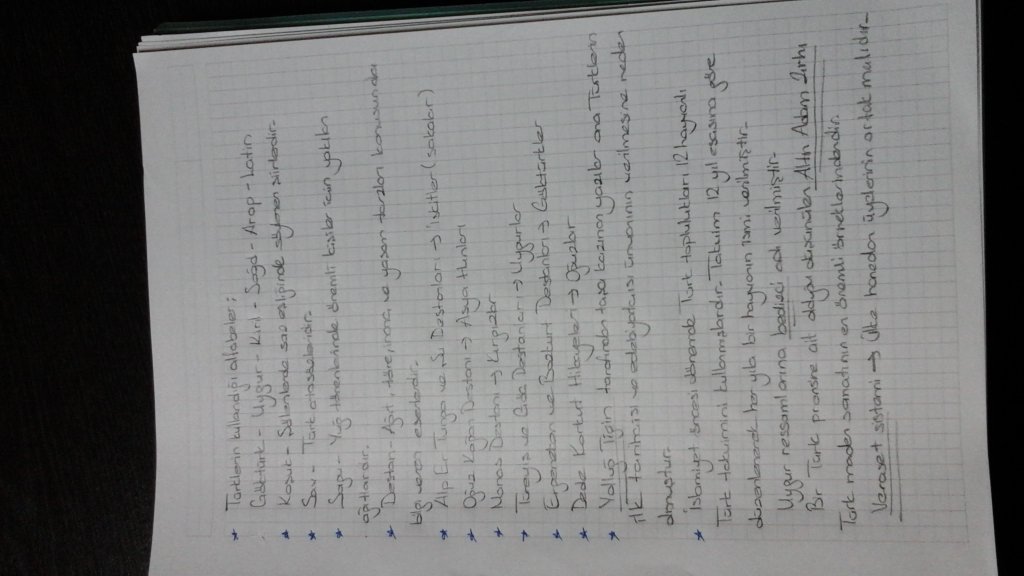 * Türklerin kullandığı alfabeler;
Göktürk - Uygur - Kiril - Soğd - Arap - Latin
* Koşuk - Şölenlerde saz eşliğinde söylenen şiirlerdir.
* Sav - Türk atasözleridir.
* Sagu - Yuğ törenlerinde önemli kişiler için yakılan
ağıtlardır.
* Destan - Ağıt, töre, inanç ve yaşam tarzları konusunda
bilgi veren eserlerdir.
* Alp Er Tunga ve Şu Destanları → İskitler (Sakalar)
* Oğuz Kağan Destanı → Asya Hunları
* Manas Destanı → Kırgızlar
* Türeyiş ve Göç Destanları → Uygurlar
* Ergenekon ve Bozkurt Destanları → Göktürkler
* Dede Korkut Hikayeleri → Oğuzlar
* Yolluğ Tigin tarafından taşa kazınan yazılar ona Türklerin
ilk tarihçisi ve edebiyatçısı ünvanının verilmesine neden
olmuştur.
* İslamiyet öncesi dönemde Türk toplulukları 12 hayvanlı
Türk takvimini kullanmışlardır. Takvim 12 yıl esasına göre
düzenlenerek her yıla bir hayvanın ismi verilmiştir.
Uygur ressamlarına bedizci adı verilmiştir.
Bir Türk prensine ait olduğu düşünülen Altın Adam Zırhı
Türk maden sanatının en önemli örneklerindendir.
Veraset sistemi → Ülke hanedan üyelerinin ortak malıdır.